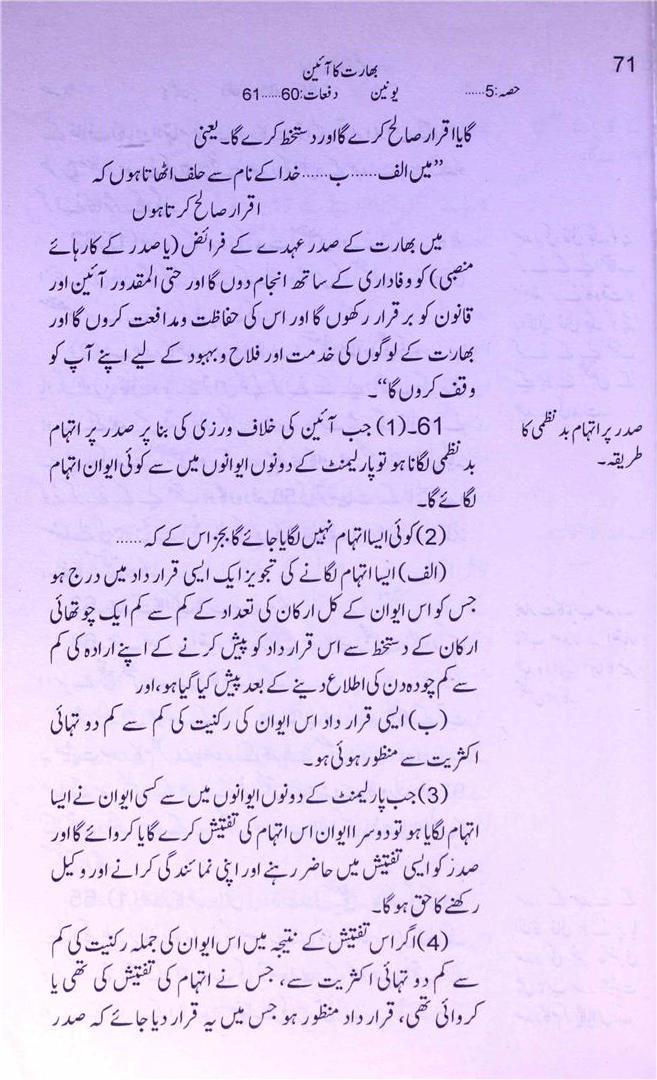 71
بھارت کا آئین
حصہ:5...... یونین دفعات:60......61
گا یا اقرار صالح کرے گا اور دستخط کرے گا۔ یعنی
”میں الف......ب......خدا کے نام سے حلف اٹھاتا ہوں کہ
اقرار صالح کرتا ہوں
میں بھارت کے صدر عہدے کے فرائض (یا صدر کے کارہائے
منصبی) کو وفاداری کے ساتھ انجام دوں گا اور حتی المقدور آئین اور
قانون کو برقرار رکھوں گا اور اس کی حفاظت و مدافعت کروں گا اور
بھارت کے لوگوں کی خدمت اور فلاح و بہبود کے لیے اپنے آپ کو
وقف کروں گا“۔
صدر پر اتہام بد نظمی کا
طریقہ۔
61۔(1) جب آئین کی خلاف ورزی کی بنا پر صدر پر اتہام
بد نظمی لگانا ہو تو پارلیمنٹ کے دونوں ایوانوں میں سے کوئی ایوان اتہام
لگائے گا۔
(2) کوئی ایسا اتہام نہیں لگایا جائے گا بجز اس کے کہ......
(الف) ایسا اتہام لگانے کی تجویز ایک ایسی قرار داد میں درج ہو
جس کو اس ایوان کے کل ارکان کی تعداد کے کم سے کم ایک چوتھائی
ارکان کے دستخط سے اس قرار داد کو پیش کرنے کے اپنے ارادہ کی کم
سے کم چودہ دن کی اطلاع دینے کے بعد پیش کیا گیا ہو، اور
(ب) ایسی قرار داد اس ایوان کی رکنیت کی کم سے کم دو تہائی
اکثریت سے منظور ہوئی ہو۔
(3) جب پارلیمنٹ کے دونوں ایوانوں میں سے کسی ایوان نے ایسا
اتہام لگایا ہو تو دوسرا ایوان اس اتہام کی تفتیش کرے گا یا کروائے گا اور
صدر کو ایسی تفتیش میں حاضر رہنے اور اپنی نمائندگی کرانے اور وکیل
رکھنے کا حق ہوگا۔
(4) اگر اس تفتیش کے نتیجہ میں اس ایوان کی جملہ رکنیت کی کم
سے کم دو تہائی اکثریت سے، جس نے اتہام کی تفتیش کی تھی یا
کروائی تھی، قرار داد منظور ہو جس میں یہ قرار دیا جائے کہ صدر